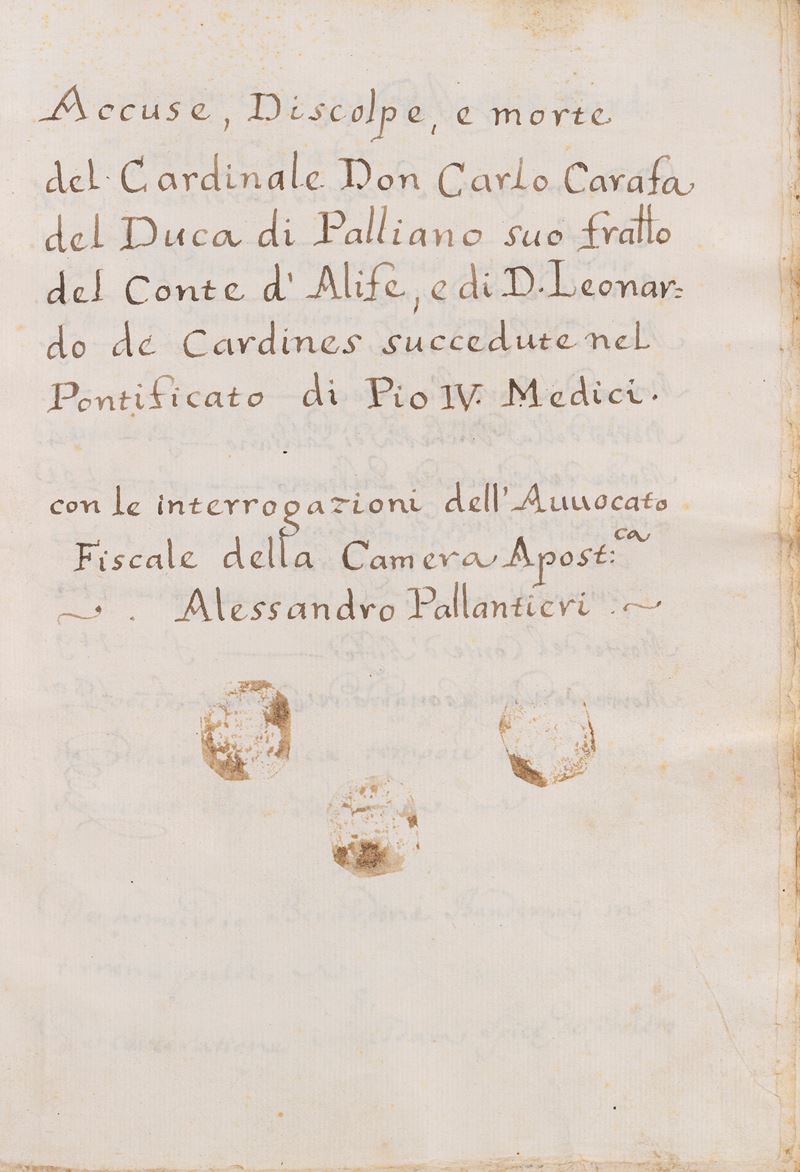 Accuse, Discolpe, e morte
del Cardinale Don Carlo Carafa
del Duca di Palliano suo fratto
del Conte d' Alife, e di D. Leonar=
do de Cardines succedute nel
Pontificato di Pio IV. Medici.
con le interrogazioni dell' Auuocato
Fiscale della Camera Apost:ca
~ . Alessandro Pallantieri . ~